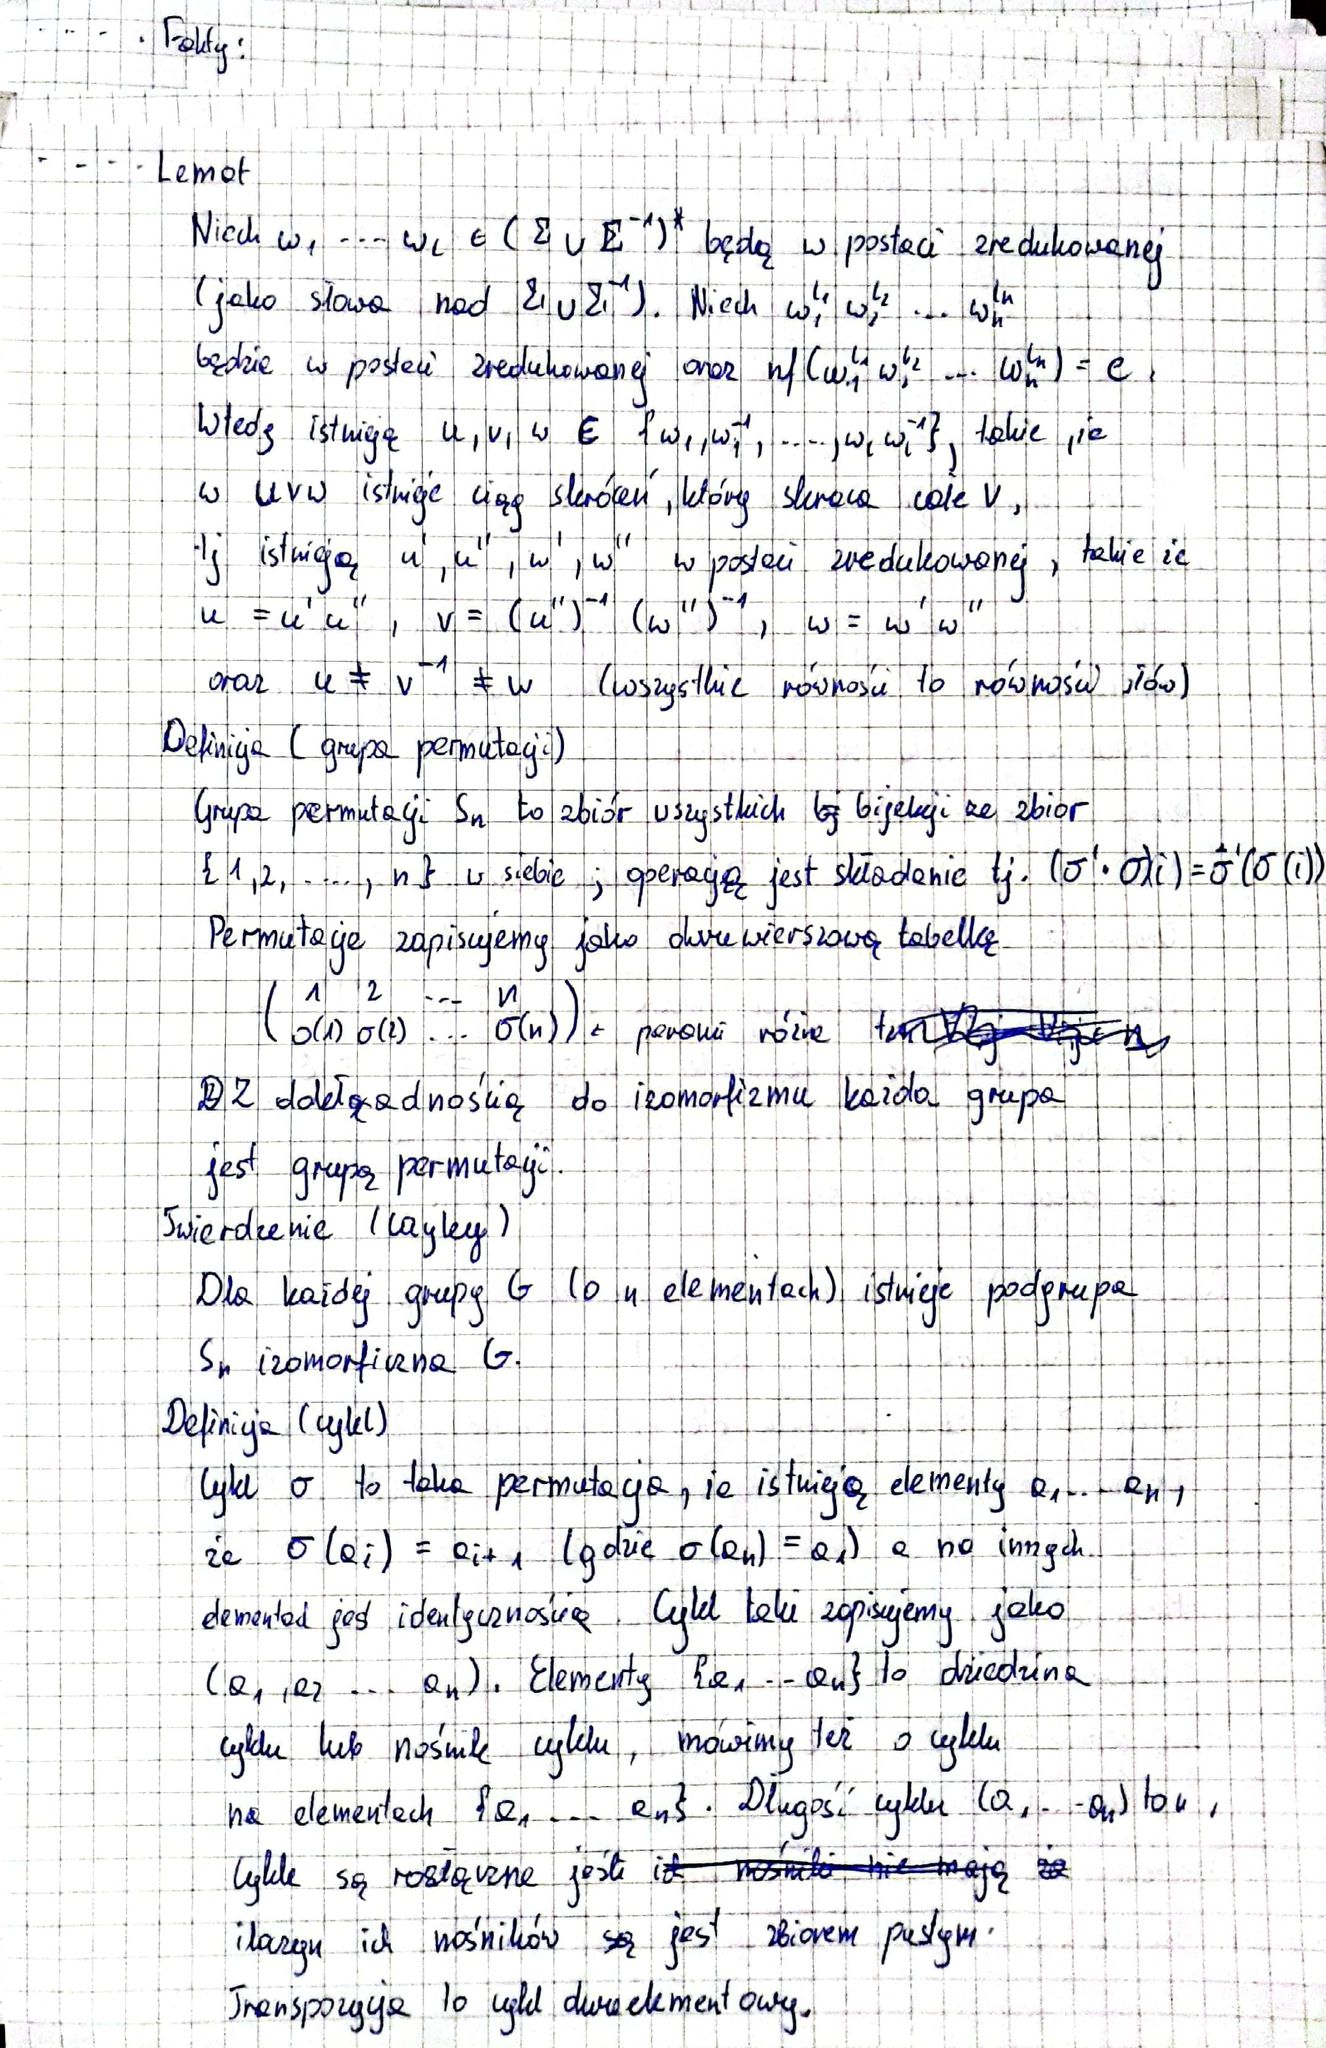 - - - - . Fakty:
- - - - Lemat
Niech w₁ .... wₗ ∈ (Σ ∪ Σ⁻¹)* będą w postaci zredukowanej
(jako słowa nad Σ ∪ Σ⁻¹). Niech w₁^{l₁} w₂^{l₂} ... wₙ^{lₙ}
będzie w postaci zredukowanej oraz nf(w₁^{l₁} w₂^{l₂} ... wₙ^{lₙ}) = e.
Wtedy istnieją u, v, w ∈ {w₁, w₁⁻¹, ....., wₗ wₗ⁻¹}, takie, że
w uvw istnieje ciąg skróceń, który skraca całe v,
tj istnieją u', u'', w', w'' w postaci zredukowanej, takie że
u = u' u'', v = (u'')⁻¹ (w'')⁻¹, w = w' w''
oraz u ≠ v⁻¹ ≠ w (wszystkie równości to równości słów)
Definicja (grupa permutacji)
Grupa permutacji Sₙ to zbiór wszystkich bijekcji ze zbior
{1,2, ....., n} w siebie ; operacją jest składanie tj. (σ' · σ)(i) = σ'(σ(i))
Permutacje zapisujemy jako dwuwierszową tabelkę
( 1 2 ... n
σ(1) σ(2) ... σ(n) ) - parami różne
Z dokłądnością do izomorfizmu każda grupa
jest grupą permutacji.
Twierdzenie (Cayley)
Dla każdej grupy G (o n elementach) istnieje podgrupa
Sₙ izomorficzna G.
Definicja (cykl)
Cykl σ to taka permutacja, że istnieją elementy a₁ .... aₙ,
że σ(aᵢ) = aᵢ₊₁ (gdzie σ(aₙ) = a₁) a na innych
elementach jest identycznością. Cykl taki zapisujemy jako
(a₁, a₂ ... aₙ). Elementy {a₁ ... aₙ} to dziedzina
cyklu lub nośnik cyklu, mówimy też o cyklu
na elementach {a₁ .... aₙ}. Długość cyklu (a₁ ... aₙ) to n,
Cykle są rozłączne jeśli
iloczyn ich nośników jest zbiorem pustym.
Transpozycja to cykl dwuelementowy.